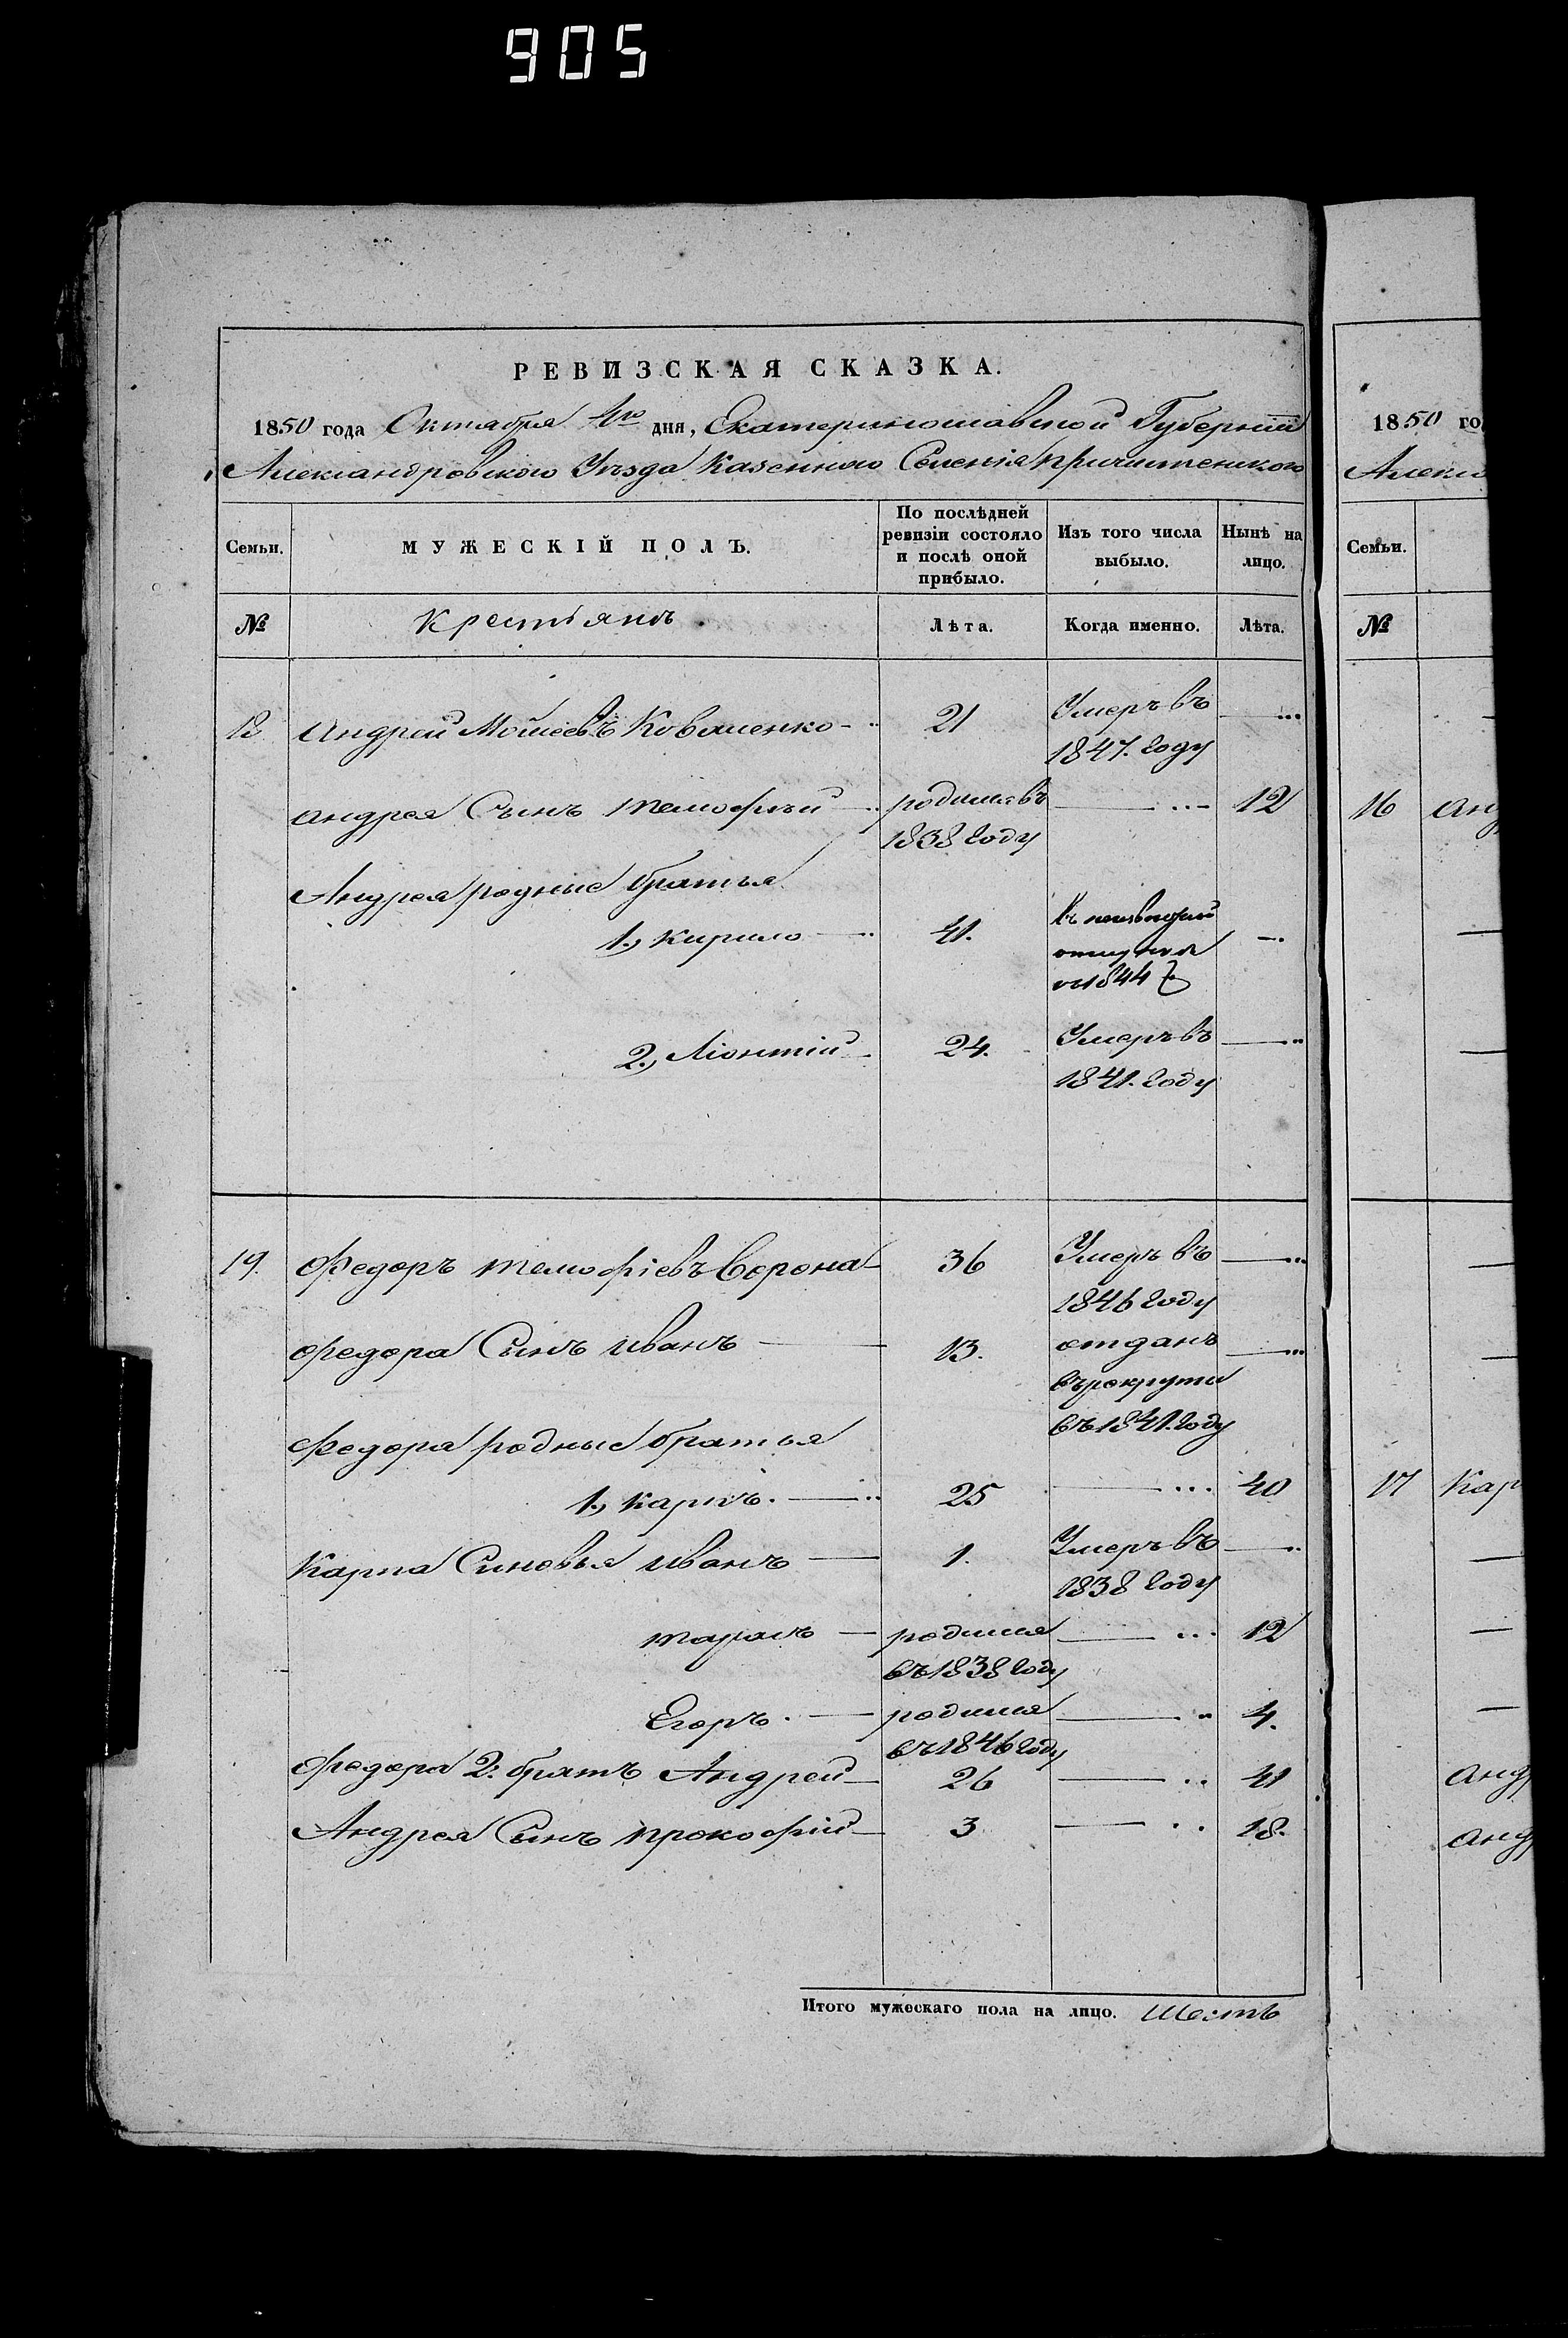 905
РЕВИЗСКАЯ СКАЗКА.
1850 года Октября 4го дня, Екатеринославской Губернии
Александровского Уезда Казенного Селения Причитенского
Семьи. МУЖЕСКІЙ ПОЛЪ. По послѣдней ревизіи состояло и послѣ оной прибыло. Изъ того числа выбыло. Нынѣ на лицо.
№ Крестьянъ Лѣта. Когда именно. Лѣта.
18 Андрей Мойсеевъ Коваленко 21 Умеръ въ
1847. году
Андрея Сынъ Темофей родился въ 12
1838 году
Андрея родные братья
1., Кирило 41.
1844
2., Ліонтій 24. Умеръ въ
1841. году
19. Федоръ Темофіевъ Ворона 36 Умеръ въ
1846 году
Федора Синъ Иванъ 13. отданъ
въ рекруты
въ 1841. году
Федора родные братья
1., Карпъ. 25 40
Карпа Синовья Иванъ 1. Умеръ въ
1838 году
Тарасъ родился 12
въ 1838 году
Егоръ. родился 4.
въ 1846 году
Федора 2: братъ Андрей 26 41
Андрея Синъ Прокофій 3 18.
Итого мужескаго пола на лицо. Шесть
1850 го
Алекс
Семьи.
№
16 Анд
17 Кар
Анд
Анд